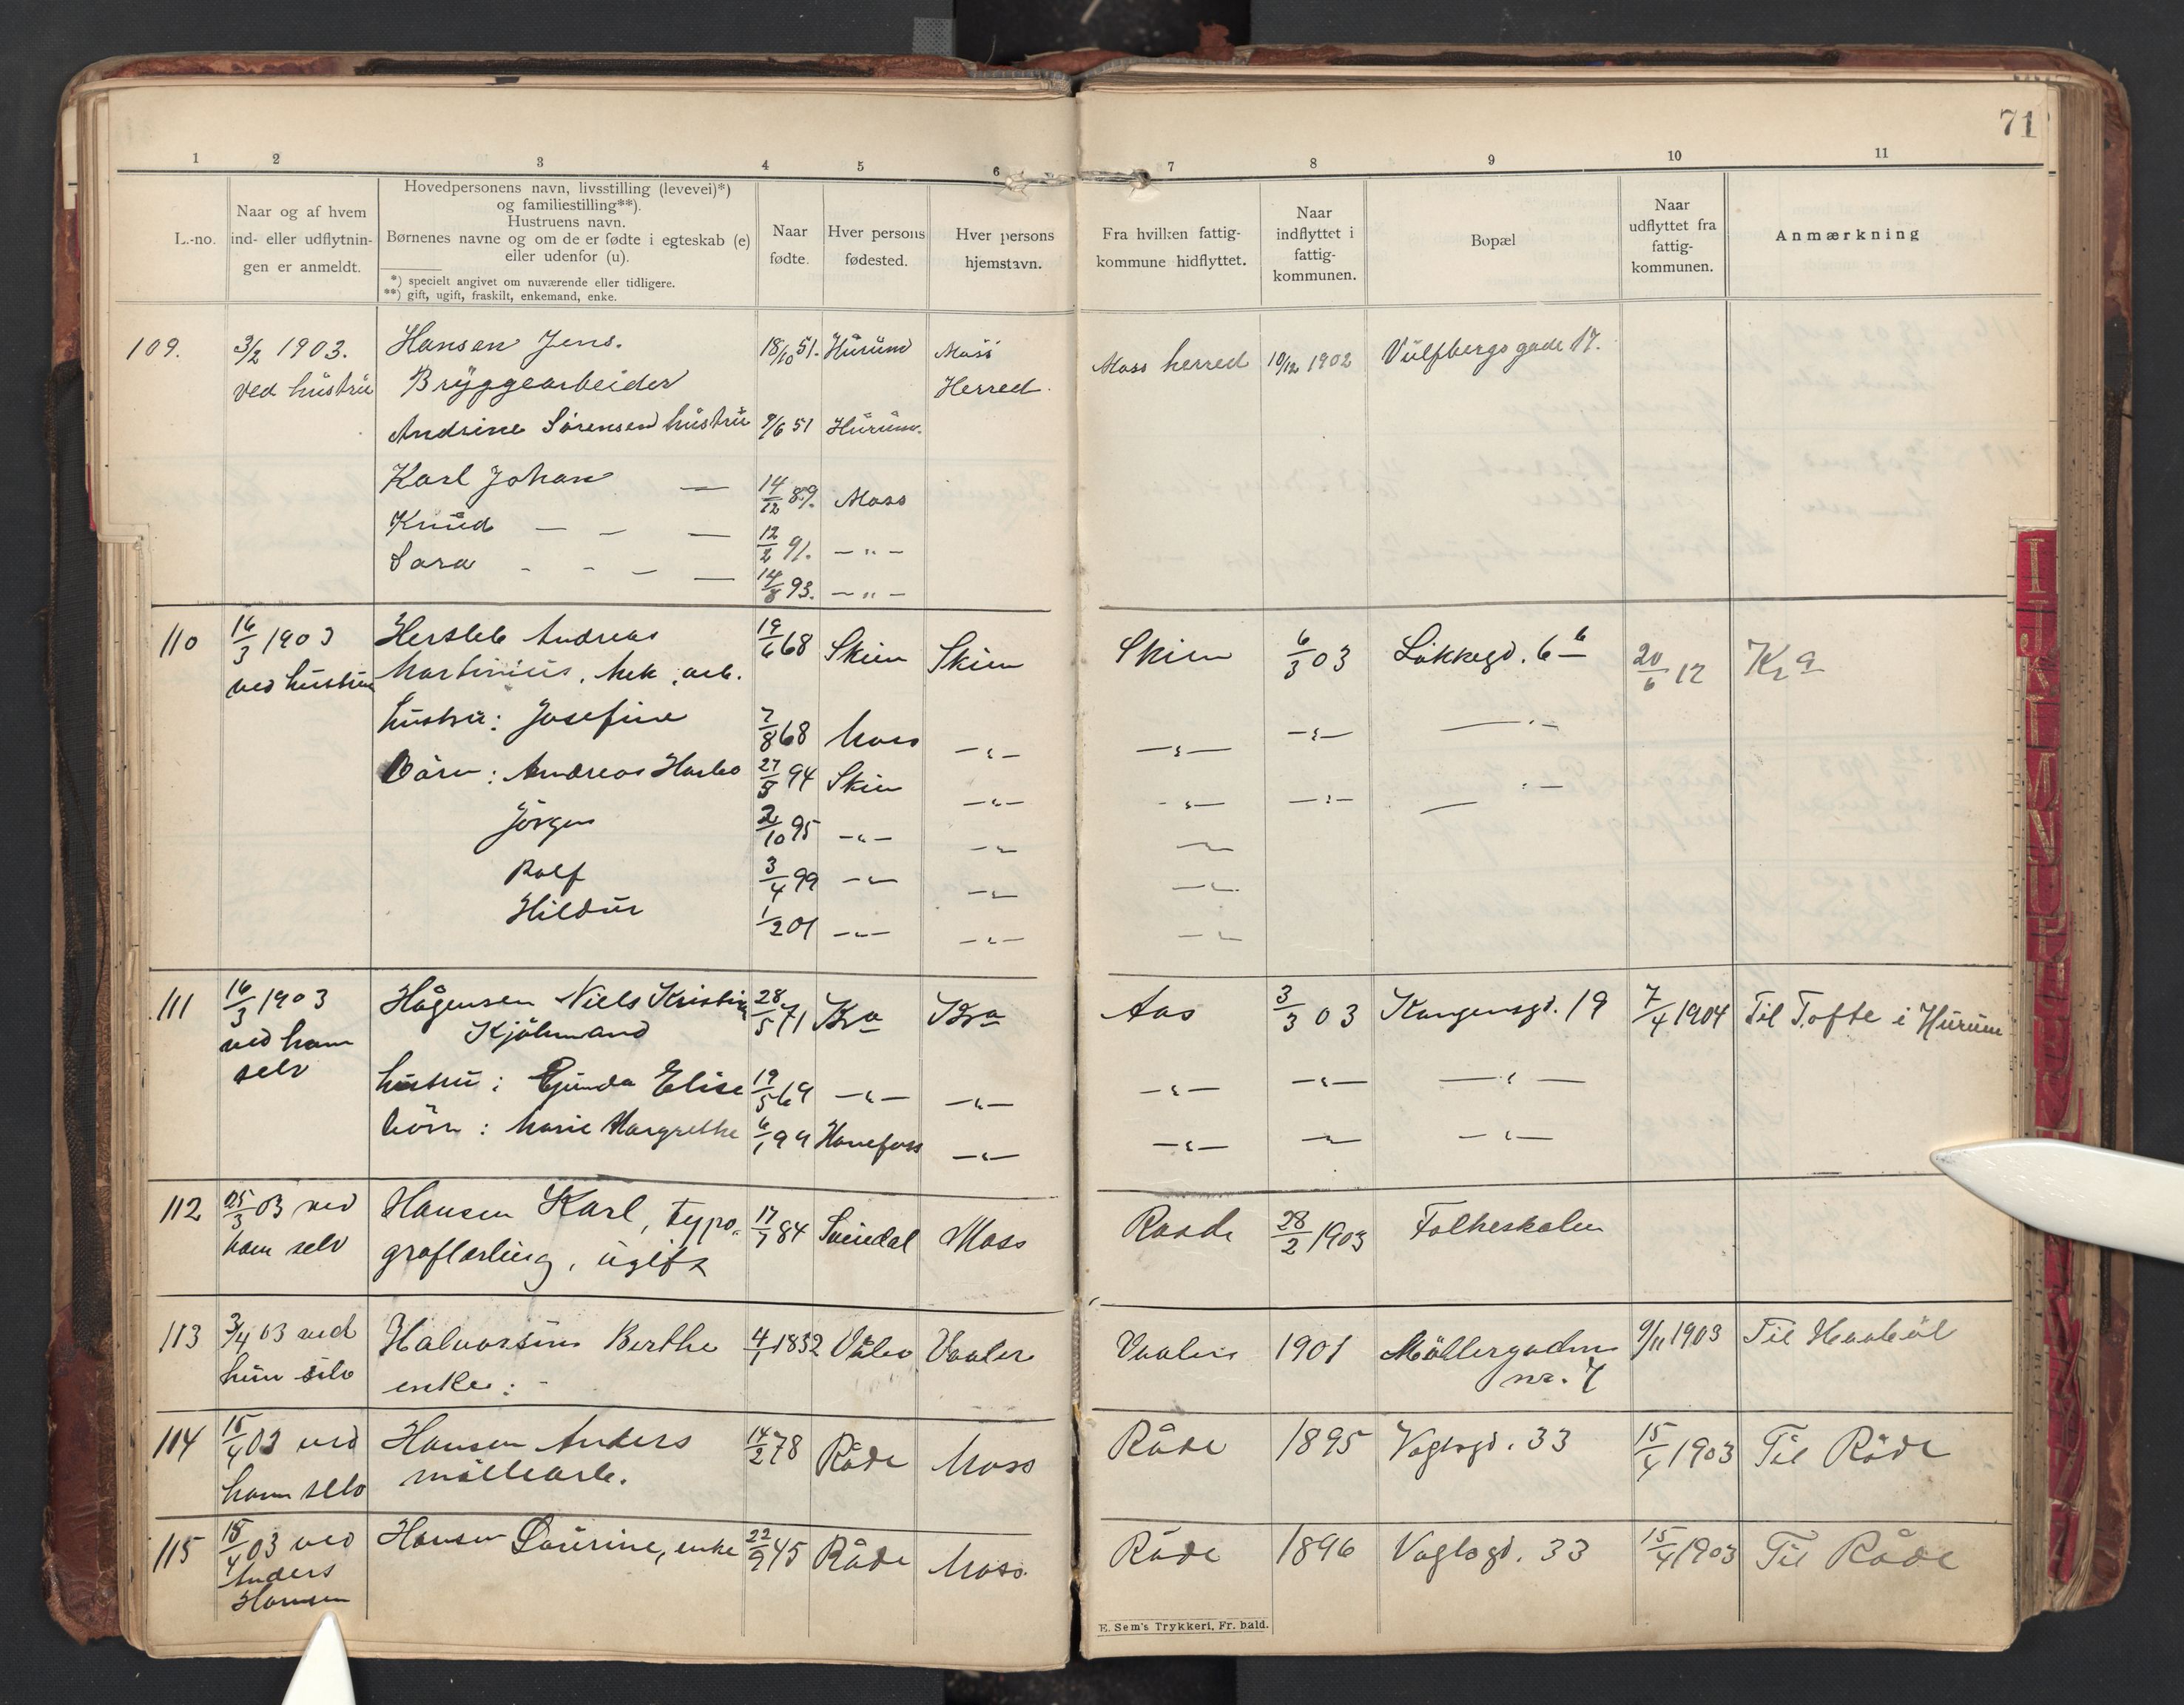 71
1 2 3 4 5 6 7 8 9 10 11
L.-no.
Naar og af hvem
ind- eller udflytnin-
gen er anmeldt.
Hovedpersonens navn, livsstilling (levevei)*)
og familiestilling**).
Hustruens navn.
Børnenes navne og om de er fødte i egteskab (e)
eller udenfor (u).
*) specielt angivet om nuværende eller tidligere.
**) gift, ugift, fraskilt, enkemand, enke.
Naar
fødte.
Hver persons
fødested.
Hver persons
hjemstavn.
Fra hvilken fattig-
kommune hidflyttet.
Naar
indflyttet i
fattig-
kommunen.
Bopæl
Naar
udflyttet fra
fattig-
kommunen.
Anmærkning
109. 3/2 1903. Hansen Jens. 18/10 51. Hurum Moss Moss herred 10/12 1902 Vulfbergs gade 17.
ved hustru Bryggearbeider Herred.
Andrine Sørensen hustru 9/6 51 Hurum.
Karl Johan — 14/12 89. Moss
Knud — — — 12/2 91. — " —
Sara - - — — 14/8 93. — " —
110 16/3 1903 Hersleb Andreas 19/6 68 Skien Skien Skien 6/3 03 Løkkegd. 6 b 20/6 12 Kra
ved hustru Martinius, mek. arb.
hustru: Josefine 7/8 68 Moss — " — — " — — " — — " —
Børn: Andreas 27/8 94 Skien — " — — " — — " — — " —
Jörgen 2/10 95 — " — — " — — " —
Rolf 3/4 99 — " — — " — — " —
Hildur 1/2 01 — " — — " — — " —
111 16/3 1903 Hågensen Niels Kristian 28/5 71 Kra Kra Aas 3/3 03 Kongensgd. 19 7/4 1904 Til Tofte i Hurum
ved ham Kjölmand
selv
hustru: Gunda Elise 19/5 69 — " — — " — — " — — " — — " —
börn: Marie Margrethe 6/1 99 Hønefoss — " — — " — — " — — " —
112 25/3 03 ved Hansen Karl, typo- 17/1 84 Svinndal Moss Raade 28/2 1903 Folkeskolen
ham selv graflærling, ugift
113 3/4 03 ved Halvorsen Berthe 4/1 1832 Våler Vaaler Vaaler 1901 Möllergaden 9/11 1903 Til Haaböl
hun selv enke: - nr. 7
114 15/4 03 ved Hansen Anders 14/2 78 Råde Moss Råde 1895 Voglsgd. 33 15/4 1903 Til Råde
ham selv möllearb.
115 15/4 03 ved Hansen Laurine, enke 22/9 45 Råde Moss. Råde 1896 Voglsgd. 33 15/4 1903 Til Råde
Anders
Hansen
E. Sem's Trykkeri, Fr. hald.
I
J
K
L
M
N